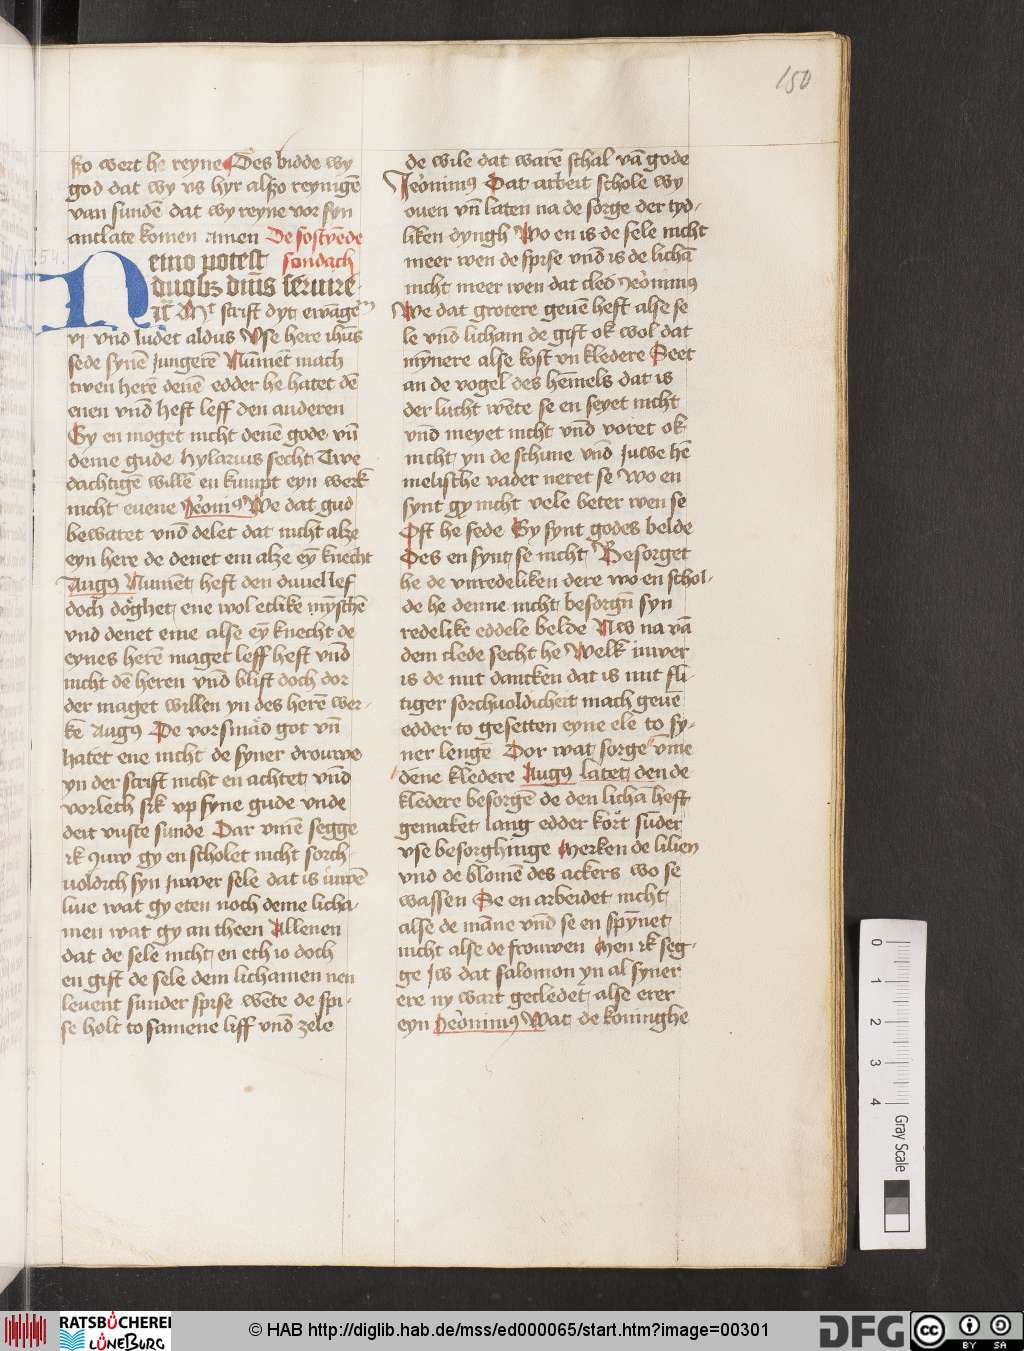 150
szo wert he reyne Des bidde wy
god dat wy vs hyr alszo reynigē
van sundē dat wy reyne vor syn
antlate komen Amen De fosteyēde
Nemo potest sondach
duobz dn̄is seruire
Mt scrift dyt ewāge
vi vnd ludet aldus Vse here ihūs
sede synē jungerē Nūment mach
twen herē denē edder he hatet dē
enen vnd̄ heft leff den anderen
Gy en moget nicht denē gode vn̄
deme gude hylarius secht Twe
dachtigē willē en kumpt eyn werk
nicht euene Jeōni9 We dat gud
bewatet vnd̄ delet dat nicht alze
eyn here de denet em alze eȳ knecht
Aug9 Nument heft den duuel lef
doch dōghet ene wol etlike mȳschē
vnd denet eme alse eȳ knecht de
eynes herē maget leff heft vnd̄
nicht dē heren vnd̄ blift doch dor
der maget willen yn des herē wer-
kē Aug9 De vorsmād got vn̄
hatet ene nicht de syner drouwe
yn der scrift nicht en achtet vnd̄
vorlech sik vp syne gude vnde
deit vuste sunde Dar vmē segge
ik juw gy en scholet nicht sorch
uoldich syn juwer sele dat is juwē
liue wat gy eten noch deme licha-
men wat gy an theen Allenen
dat de sele nicht en eth io doch
en gift de sele dem lichamen nen
leuent sunder spise wēte de spi-
se holt to samene liff vnd̄ zele
de wile dat warē schal vā gode
Jeōnim9 Dat arbeit schole wy
ouen vn̄ laten na de sorge der tyd-
liken dyngh Wo en is de sele nicht
meer wen de spise vnd̄ is de lichā
nicht meer wen dat cled Jeōnim9
We dat grotere geuē heft alse se
le vnd̄ licham de gift ok wol dat
mȳnere alse kost vn kledere Seet
an de vogel des hēmels dat is
der lucht wēte se en seyet nicht
vnd̄ meyet nicht vnd̄ voret ok
nicht yn de schune vnd̄ juwe hē
melische vader neret se Wo en
synt gy nicht vele beter wen se
Oft he sede Gy synt godes belde
Des en synt se nicht Besorget
he de vnredeliken dere wo en schol-
de he denne nicht besorgn̄ syn
redelike eddele belde Nw na vā
dem clede secht he Welk juwer
is de mit dancken dat is mit fli-
tiger sorchuoldicheit mach geuē
edder to gesetten eyne ele to sy-
ner lengē Dor wat sorge vme
dene kledere Aug9 latet den de
kledere besorgē de den lichā heft
gemaket lang edder kort sūder
vse besorghinge Merken de lilien
vnd de blomē des ackers wo se
wassen Se en arbeidet nicht
alse de māne vnd̄ se en spȳnet
nicht alse de frouwen Men ik seg-
ge jw dat salomon yn al syner
ere ny wart gecledet alse erer
eyn Jeōnim9 Wat de koninghe
0 1 2 3 4
Gray Scale
RATSBÜCHEREI
LÜNEBURG
© HAB http://diglib.hab.de/mss/ed000065/start.htm?image=00301
DFG
cc
BY SA